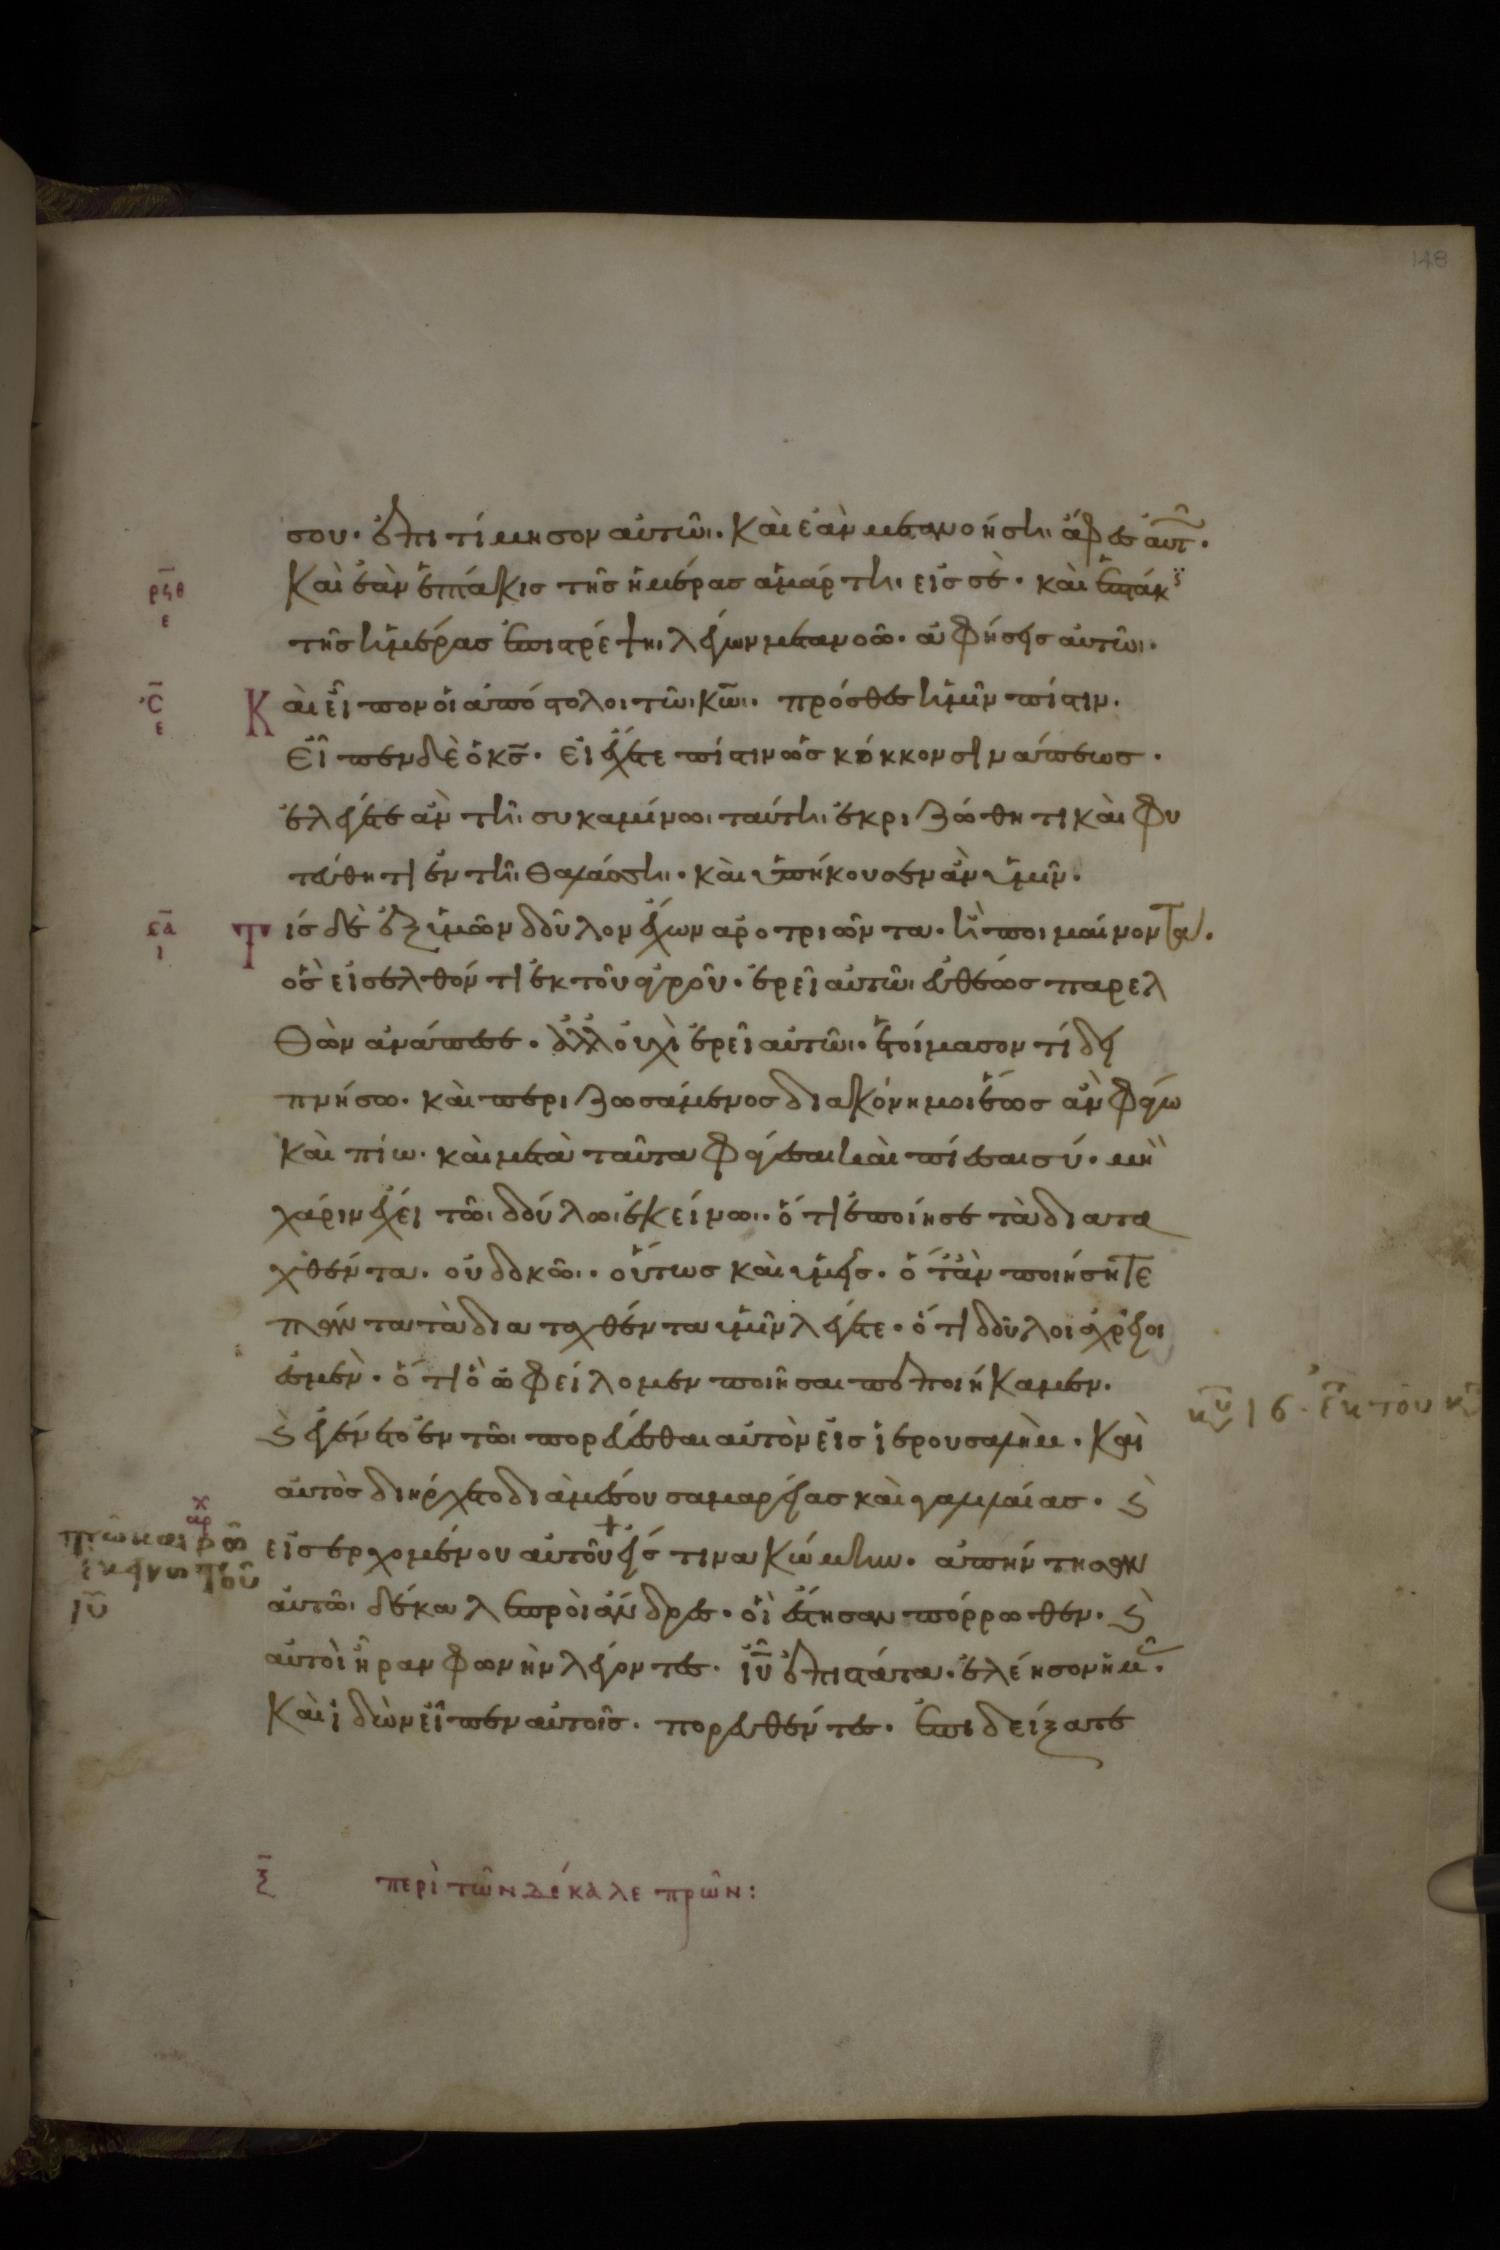 148
σου· ἐπιτίμησον αὐτῶι· καὶ ἐὰν μετανοήσηι ἄφες αὐτ̑·
ρϟθ
ε
καὶ ἐὰν ἑπτάκις τῆς ἡμέρας ἁμάρτηι εἰς σὲ· καὶ ἑπτάκς
τῆς ἡμέρας ἐπιστρέψηι λέγων μετανοῶ· ἀφήσεις αὐτῶι·
ς̄
ε
Καὶ εἶπον οἱ ἀπόστολοι τῶι κ̄ω̄ι· πρόσθες ἡμῖν πίστιν·
εἶπεν δὲ ὁ κ̄ς̄· εἰ ἔχετε πίστιν ὡς κόκκον σινάπεως·
ἐλέγετε ἂν τῆι συκαμίνωι ταύτηι ἐκριζώθητι καὶ φυ
τεύθητι ἐν τῆι θαλάσσηι· καὶ ὑπήκουσεν ἂν ὑμῖν·
σ̄ᾱ
ι
Τίς δὲ ἐξ ὑμῶν δοῦλον ἔχων ἀροτριῶντα· ἢ ποιμαίνοντα·
ὃς εἰσελθόντι ἐκ τοῦ ἀγροῦ· ἐρεῖ αὐτῶι εὐθέως παρελ
θὼν ἀνάπεσε· ἀλλ οὐχὶ ἐρεῖ αὐτῶι· ἑτοίμασον τί δει
πνήσω· καὶ περιζωσάμενος διακόνημοι ἕως ἂν φάγω
καὶ πίω· καὶ μετὰ ταῦτα φάγεσαι καὶ πίεσαι σύ· μὴ
χάριν ἔχει τῶι δούλωι ἐκείνωι· ὅτι ἐποίησε τὰ διατα
χθέντα· οὐ δοκῶ· οὕτως καὶ ὑμεῖς· ὅταν ποιήσητε
πάντα τὰ διαταχθέντα ὑμῖν λέγετε· ὅτι δοῦλοι ἀχρεῖοι
ἐσμὲν· ὅτι ὃ ὠφείλομεν ποιῆσαι πεποιήκαμεν·
κυ ιϛ· ἐκ του κ
ϗ ἐγένετο ἐν τῶι πορεύεσθαι αὐτὸν εἰς ἱερουσαλήμ· καὶ
αὐτὸς διήρχετο διὰ μέσου σαμαρείας καὶ γαλιλαίας· ϗ
αρχ
τῶ καιρῶ
ἐκείνω τοῦ
ιῡ
εἰσερχομένου αὐτοῦ + εἴς τινα κώμην· ἀπήντησαν
αὐτῶι δέκα λεπροὶ ἄνδρες· οἳ ἔστησαν πόρρωθεν· ϗ
αὐτοὶ ἦραν φωνὴν λέγοντες· ἰῡ ἐπιστάτα· ἐλέησον ἡμ̑·
καὶ ἰδὼν εἶπεν αὐτοῖς· πορευθέντες· ἐπιδείξατε
ξ̄ περὶ τῶν δέκα λεπρῶν: